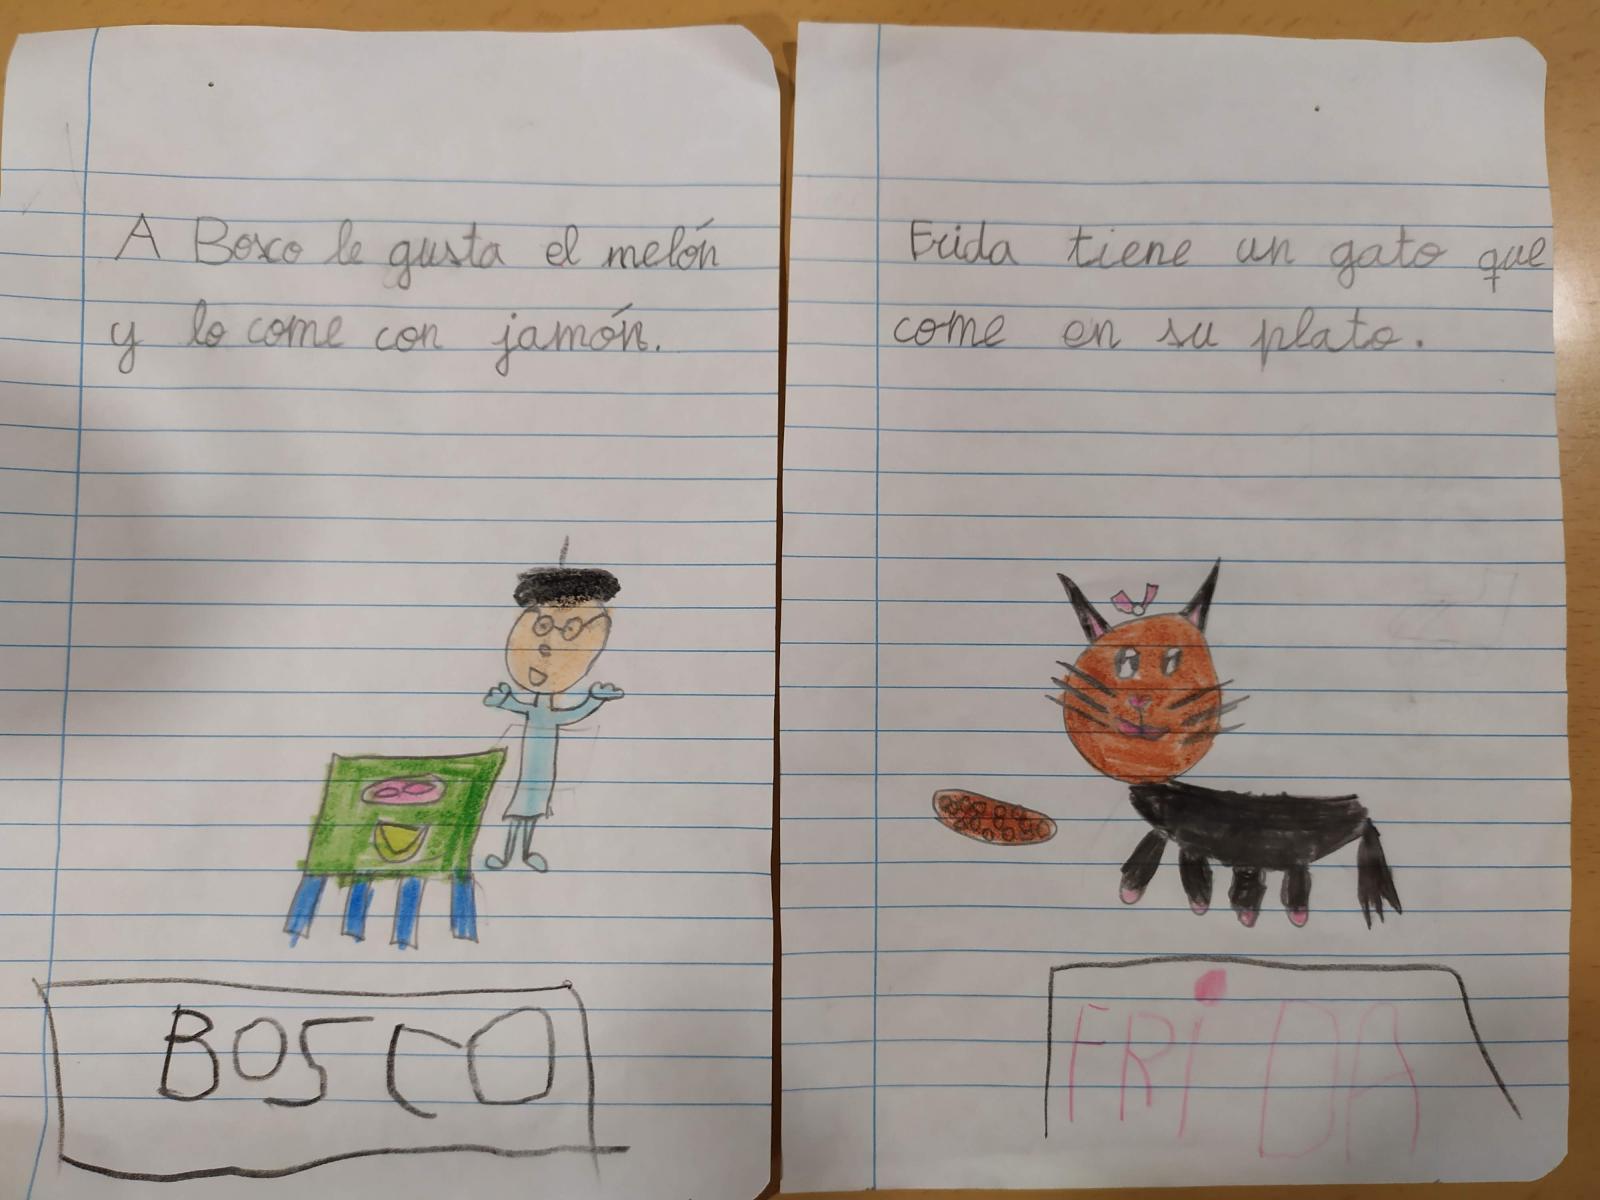 A Bosco le gusta el melón
y lo come con jamón.
BOSCO
Frida tiene un gato que
come en su plato.
FRiDA